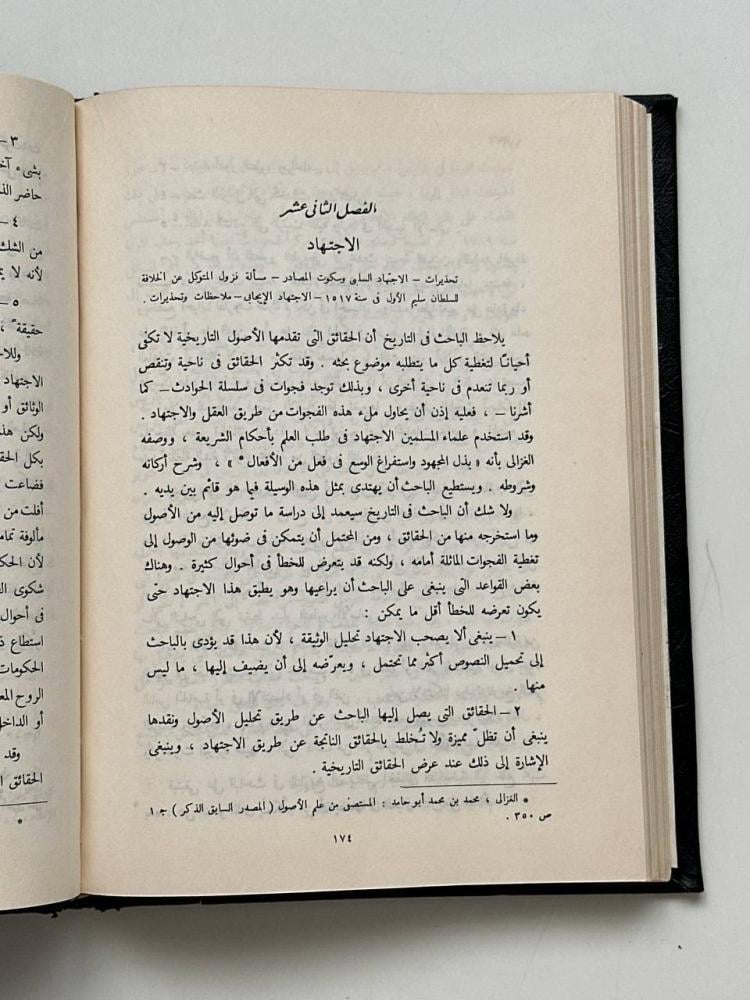 الفصل الثانى عشر
الاجتهاد
تحذيرات – الاجتهاد السلبى وسكوت المصادر – مسألة نزول المتوكل عن الخلافة
للسلطان سليم الأول فى سنة ١٥١٧ – الاجتهاد الإيجابى – ملاحظات وتحذيرات .
يلاحظ الباحث فى التاريخ أن الحقائق التى تقدمها الأصول التاريخية لا تكفى
أحيانًا لتغطية كل ما يتطلبه موضوع بحثه . وقد تكثر الحقائق فى ناحية وتنقص
أو ربما تنعدم فى ناحية أخرى ، وبذلك توجد فجوات فى سلسلة الحوادث – كما
أشرنا – ، فعليه إذن أن يحاول ملء هذه الفجوات من طريق العقل والاجتهاد .
وقد استخدم علماء المسلمين الاجتهاد فى طلب العلم بأحكام الشريعة ، ووصفه
الغزالى بأنه « بذل المجهود واستفراغ الوسع فى فعل من الأفعال * » ، وشرح أركانه
وشروطه . ويستطيع الباحث أن يهتدى بمثل هذه الوسيلة فيما هو قائم بين يديه .
ولا شك أن الباحث فى التاريخ سيعمد إلى دراسة ما توصل إليه من الأصول
وما استخرجه منها من الحقائق ، ومن المحتمل أن يتمكن فى ضوئها من الوصول إلى
تغطية الفجوات الماثلة أمامه ، ولكنه قد يتعرض للخطأ فى أحوال كثيرة . وهناك
بعض القواعد التى ينبغى على الباحث أن يراعيها وهو يطبق هذا الاجتهاد حتى
يكون تعرضه للخطأ أقل ما يمكن :
١ – ينبغى ألا يصحب الاجتهاد تحليل الوثيقة ، لأن هذا قد يؤدى بالباحث
إلى تحميل النصوص أكثر مما تحتمل ، ويعرّضه إلى أن يضيف إليها ، ما ليس
منها .
٢ – الحقائق التى يصل إليها الباحث عن طريق تحليل الأصول ونقدها
ينبغى أن تظلّ مميزة ولا تُخلط بالحقائق الناتجة عن طريق الاجتهاد ، وينبغى
الإشارة إلى ذلك عند عرض الحقائق التاريخية .
* الغزالى ، محمد بن محمد أبو حامد : المستصفى من علم الأصول ( المصدر السابق الذكر ) ج ١
ص ٣٥٠ .
١٧٤
٣ –
حاضر الذ
٤ –
من الشك
لأنه لا ي
٥ –
حقيقة ،
الاجتهاد
الوثائق أو
ولكن هذ
بكل الحقا
فضاعت
أفلت من
مألوفة تماما
لأن الحك
شكوى ال
فى أحوال
استطاع ذ
الحكومات
الروح المع
أو الداخل
وقد
الحقائق ا
*